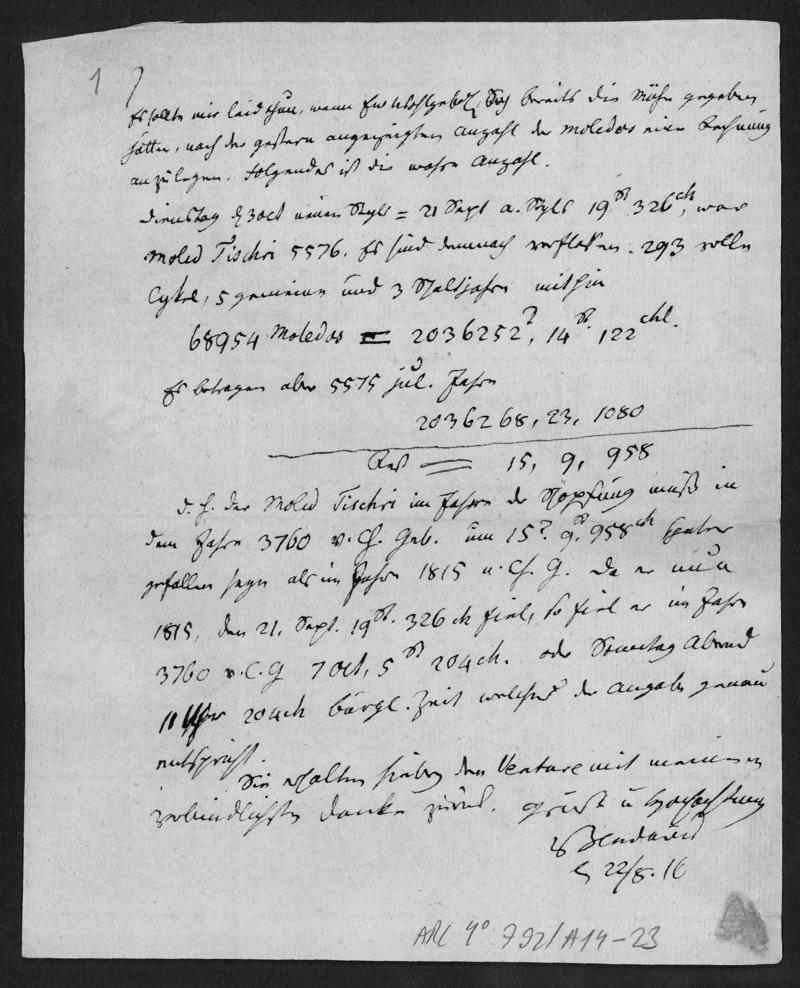 1
Es sollte mir leid thun, wenn Ew Wohlgeb. sich bereits die Mühe gegeben
hätten, nach der gestern angezeigten Anzahl der Moledos eine Rechnung
anzulegen. Folgendes ist die wahre Anzahl.
Dienstag d 3 oct neuen Styls = 21 Sept a. Styls 19 St 326 ch, war
Moled Tischri 5576. Es sind demnach verflossen. 293 volle
Cykel, 5 gemeine und 3 Schaltjahre mithin
68954 Moledos = 2036252 , 14 St. 122 chl.
Es betragen aber 5575 jul. Jahre
2036268, 23, 1080
Rest = 15, 9, 958
d. h. der Moled Tischri im Jahre der Schöpfung muß in
dem Jahre 3760 v. Ch. Geb. um 15 . 9 St. 958 ch später
gefallen seyn als im Jahre 1815 n. Ch. G. Da er nun
1815, den 21. Sept. 19 St. 326 ch fiel, so fiel er im Jahre
3760 v. C. G 7 Oct, 5 St 204 ch. oder Sonntag Abend
11 Uhr 204 ch bürgl. Zeit welches der Angabe genau
entspricht.
Sie erhalten hiebey den Venture mit meinem
verbindlichsten Danke zurück. Gruß u Hochachtung
Bendavid
22/8. 16
ARC 4° 792/A14-23